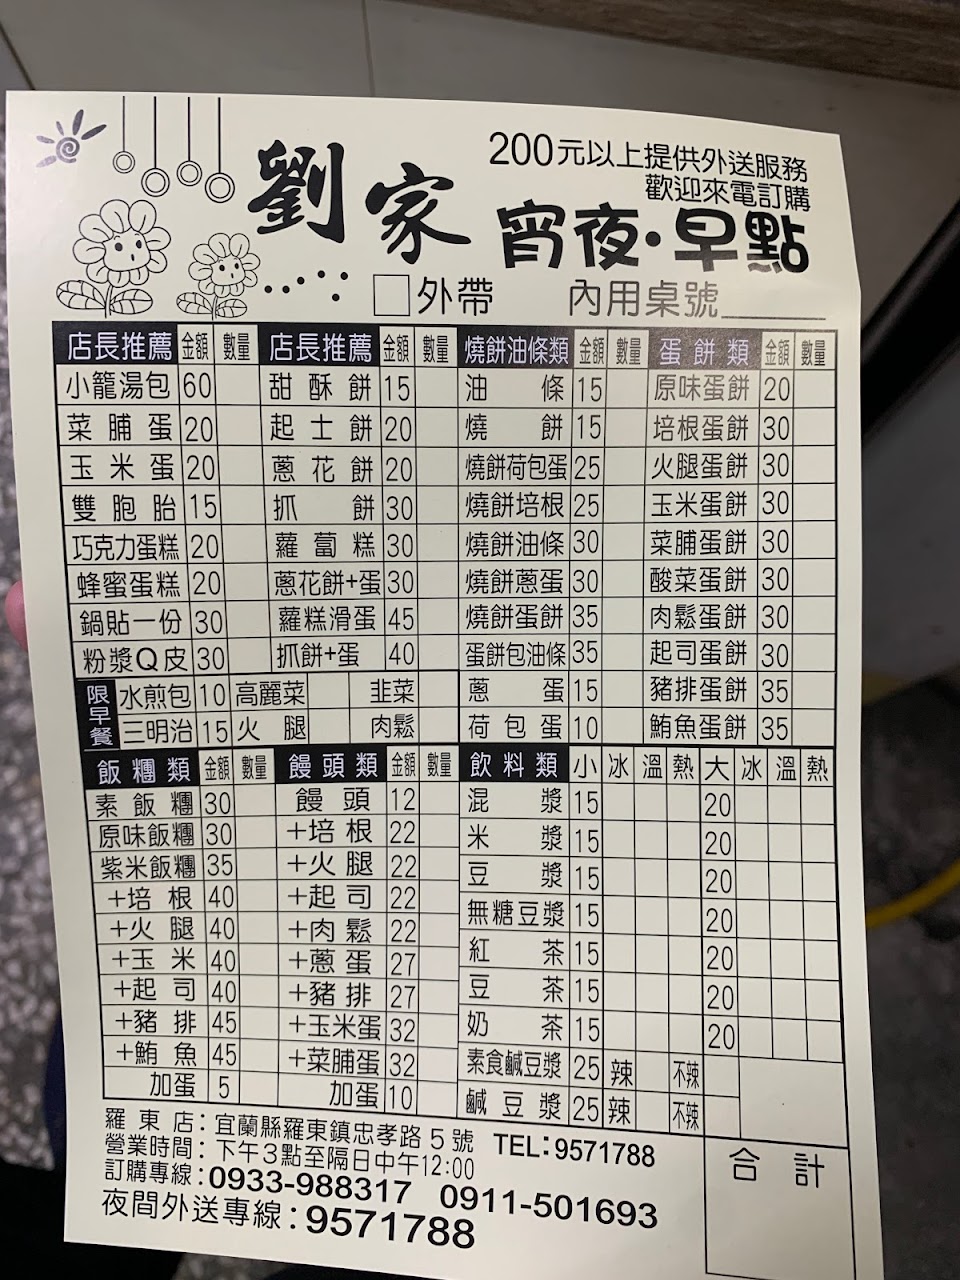 200元以上提供外送服務
歡迎來電訂購
劉家 宵夜·早點
□外帶 內用桌號
店長推薦 金額 數量 店長推薦 金額 數量 燒餅油條類 金額 數量 蛋餅類 金額 數量
小籠湯包 60 甜酥餅 15 油條 15 原味蛋餅 20
菜脯蛋 20 起士餅 20 燒餅 15 培根蛋餅 30
玉米蛋 20 蔥花餅 20 燒餅荷包蛋 25 火腿蛋餅 30
雙胞胎 15 抓餅 30 燒餅培根 25 玉米蛋餅 30
巧克力蛋糕 20 蘿蔔糕 30 燒餅油條 30 菜脯蛋餅 30
蜂蜜蛋糕 20 蔥花餅+蛋 30 燒餅蔥蛋 30 酸菜蛋餅 30
鍋貼一份 30 蘿糕滑蛋 45 燒餅蛋餅 35 肉鬆蛋餅 30
粉漿Q皮 30 抓餅+蛋 40 蛋餅包油條 35 起司蛋餅 30
限早餐 水煎包 10 高麗菜 韭菜 蔥蛋 15 豬排蛋餅 35
三明治 15 火腿 肉鬆 荷包蛋 10 鮪魚蛋餅 35
飯糰類 金額 數量 饅頭類 金額 數量 飲料類 小 冰 溫 熱 大 冰 溫 熱
素飯糰 30 饅頭 12 混漿 15 20
原味飯糰 30 +培根 22 米漿 15 20
紫米飯糰 35 +火腿 22 豆漿 15 20
+培根 40 +起司 22 無糖豆漿 15 20
+火腿 40 +肉鬆 22 紅茶 15 20
+玉米 40 +蔥蛋 27 豆茶 15 20
+起司 40 +豬排 27 奶茶 15 20
+豬排 45 +玉米蛋 32 素食鹹豆漿 25 辣 不辣
+鮪魚 45 +菜脯蛋 32 鹹豆漿 25 辣 不辣
加蛋 5 加蛋 10
合計
羅東店：宜蘭縣羅東鎮忠孝路5號 TEL:9571788
營業時間：下午3點至隔日中午12:00
訂購專線：0933-988317 0911-501693
夜間外送專線：9571788